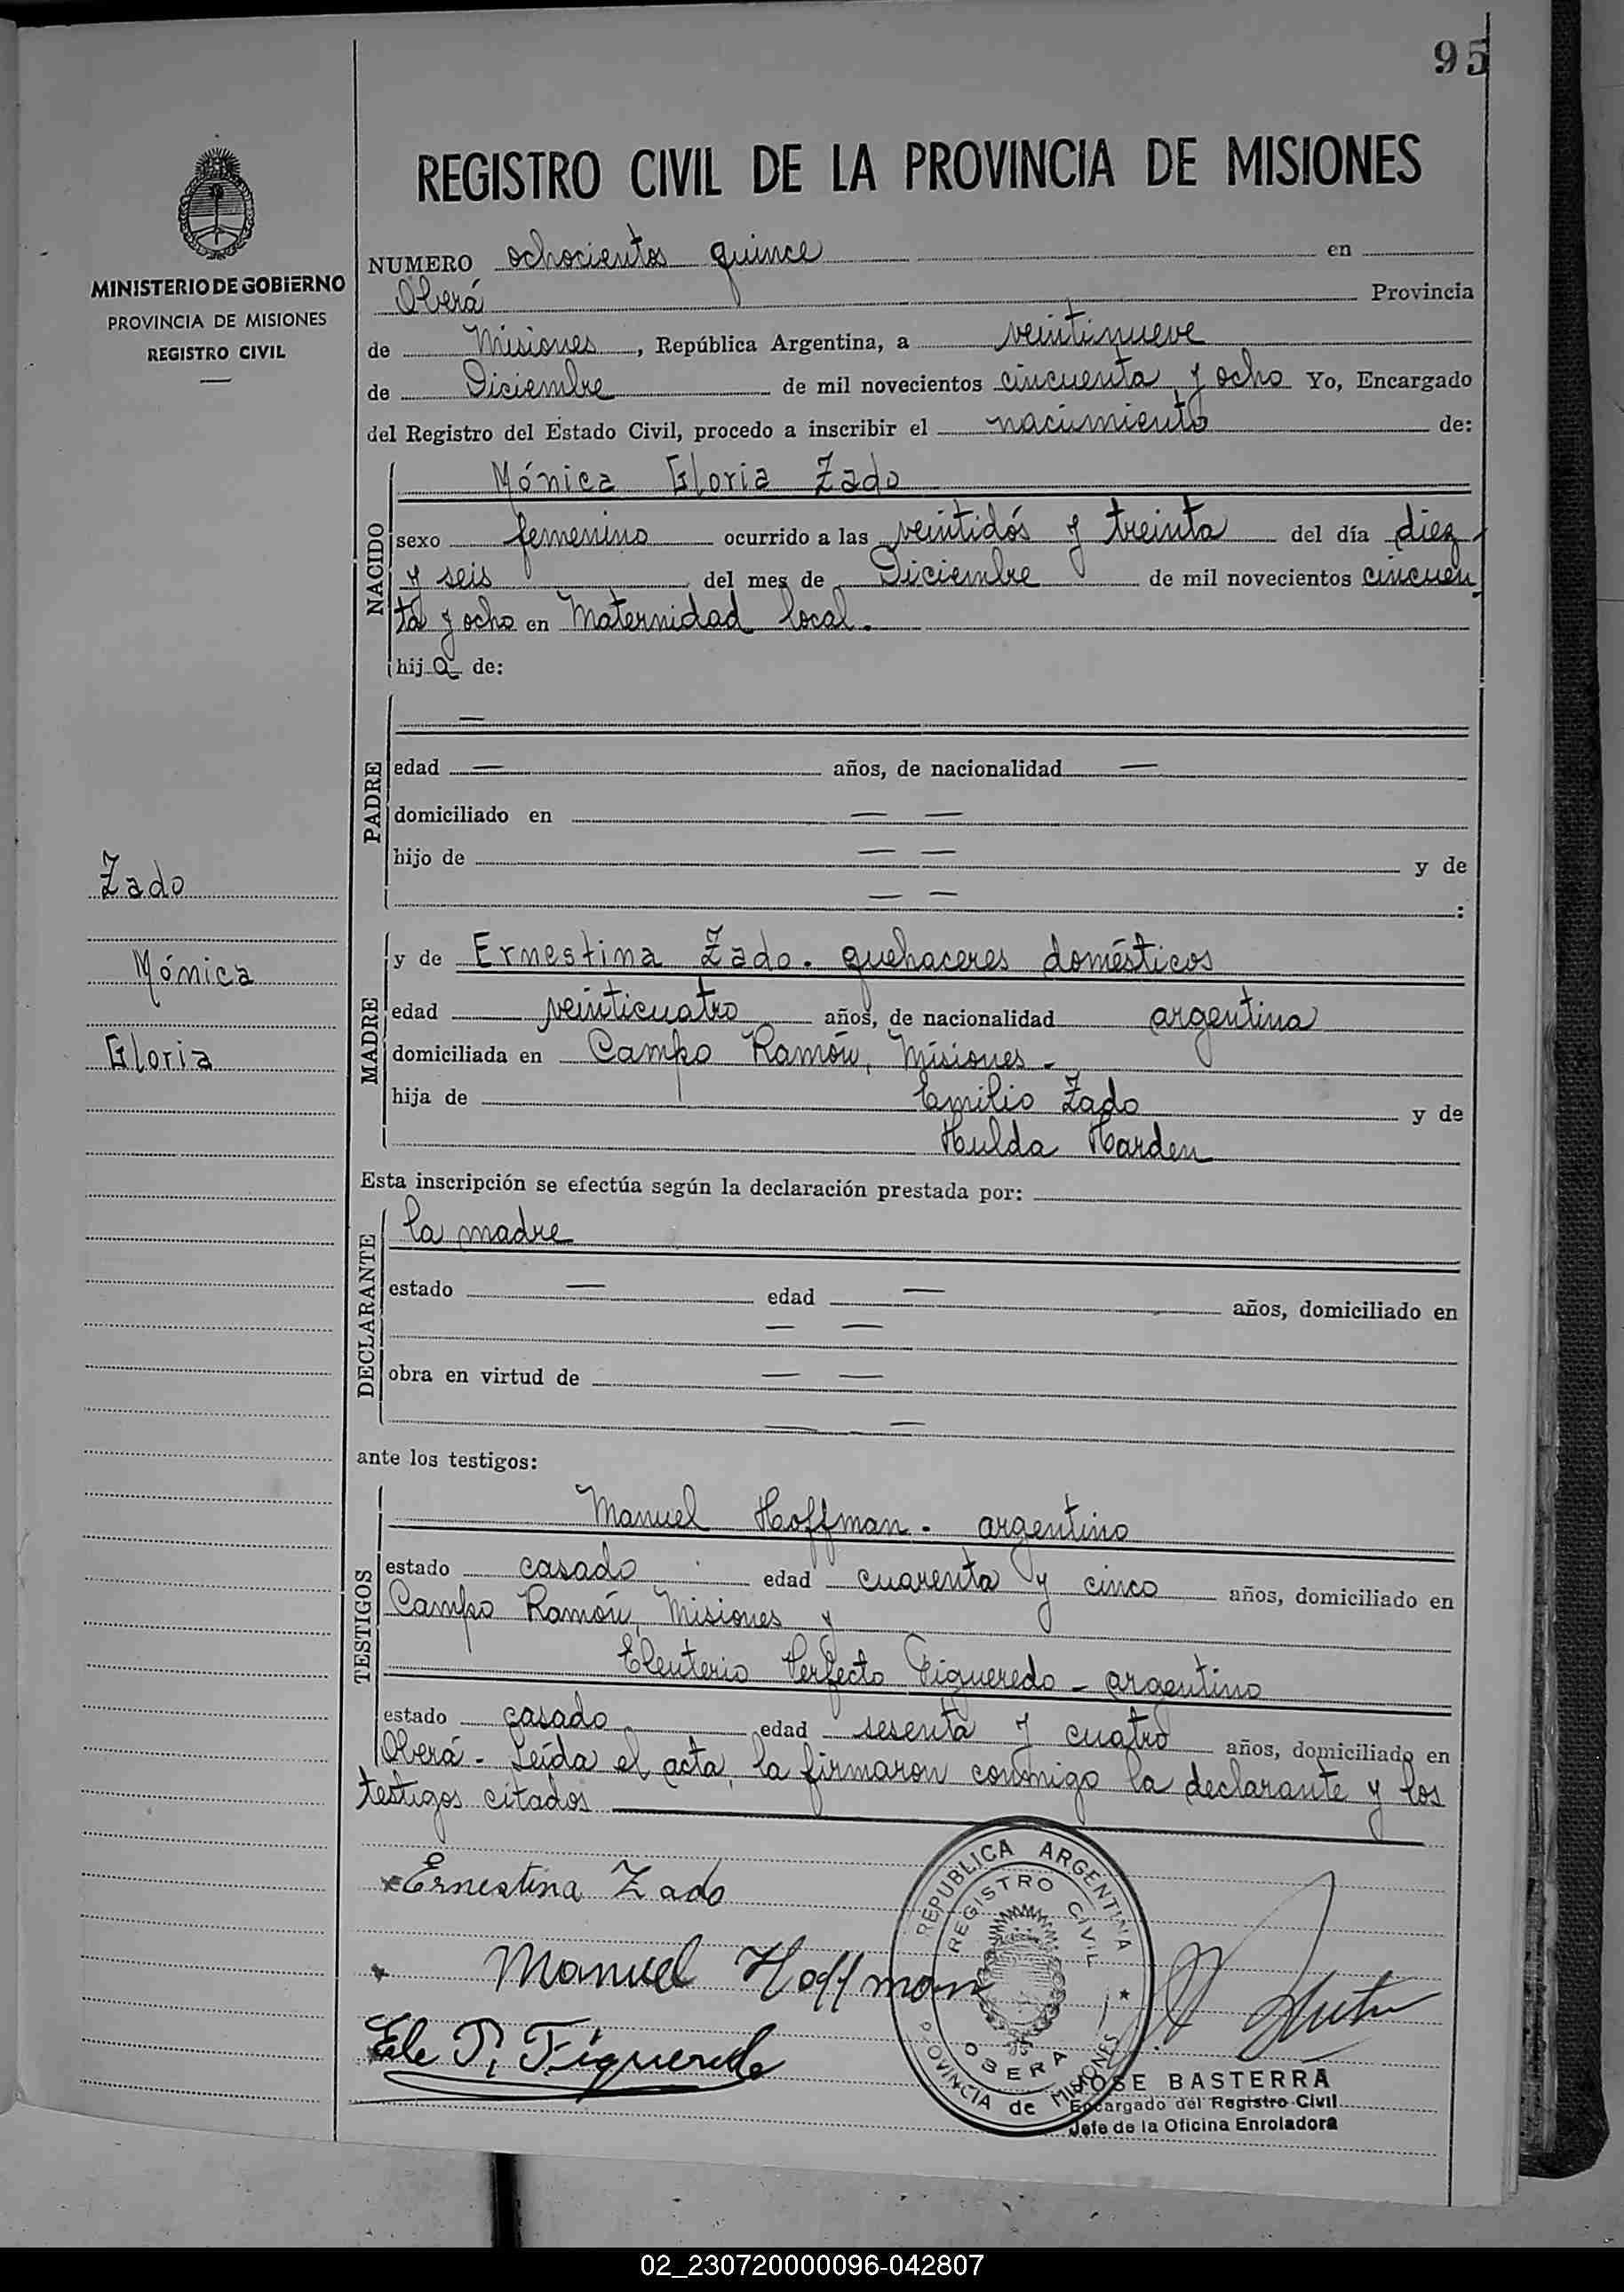 95
REGISTRO CIVIL DE LA PROVINCIA DE MISIONES
MINISTERIO DE GOBIERNO
PROVINCIA DE MISIONES
REGISTRO CIVIL
NUMERO ochocientos quince en
Oberá Provincia
de Misiones, República Argentina, a veintinueve
de Diciembre de mil novecientos cincuenta y ocho Yo, Encargado
del Registro del Estado Civil, procedo a inscribir el nacimiento de:
NACIDO
Mónica Gloria Zado
sexo femenino ocurrido a las veintidós y treinta del día diez
y seis del mes de Diciembre de mil novecientos cincuen
ta y ocho en Maternidad local.
hija de:
PADRE
—
edad — años, de nacionalidad —
domiciliado en — —
hijo de — — y de
— — :
Zado
Mónica
Gloria
MADRE
y de Ernestina Zado. quehaceres domésticos
edad veinticuatro años, de nacionalidad argentina
domiciliada en Campo Ramón, Misiones -
hija de Emilio Zado y de
Hulda Harden
Esta inscripción se efectúa según la declaración prestada por:
DECLARANTE
la madre
estado — edad — años, domiciliado en
— —
obra en virtud de — —
— —
ante los testigos:
TESTIGOS
Manuel Hoffman. argentino
estado casado edad cuarenta y cinco años, domiciliado en
Campo Ramón, Misiones y
Eleuterio Perfecto Figueredo - argentino
estado casado edad sesenta y cuatro años, domiciliado en
Oberá - Leída el acta, la firmaron conmigo la declarante y los
testigos citados
Ernestina Zado
Manuel Hoffman
Ele P. Figueredo
REPUBLICA ARGENTINA
REGISTRO CIVIL
OBERA
PROVINCIA de MISIONES
JOSE BASTERRA
Encargado del Registro Civil
Jefe de la Oficina Enroladora
02_230720000096-042807